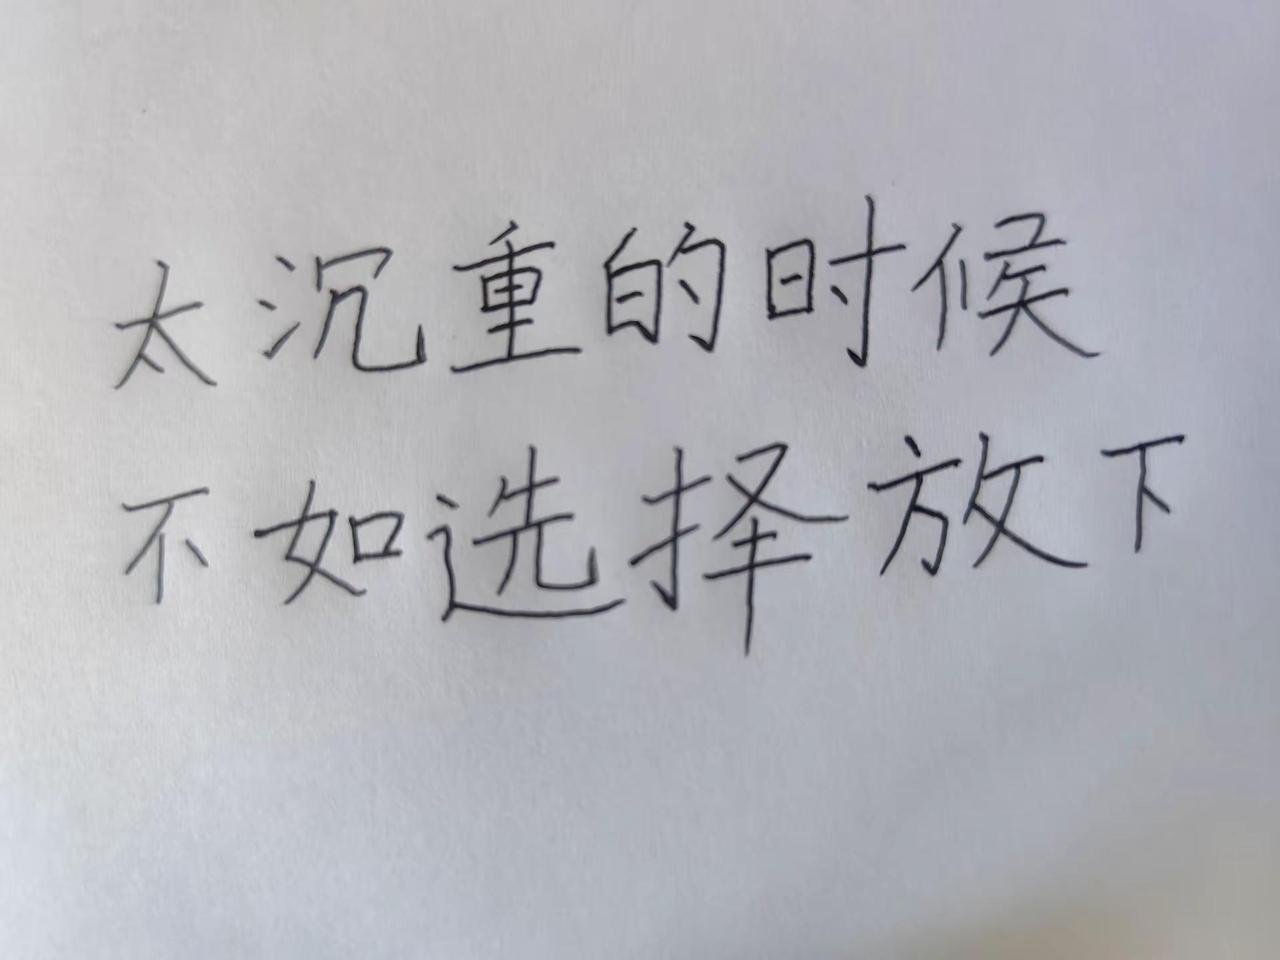 太沉重的时候
不如选择放下